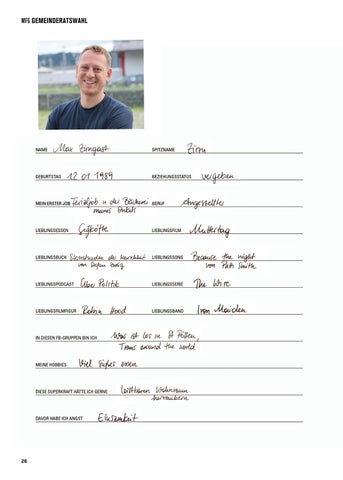 MFG GEMEINDERATSWAHL
NAME Max Zirngast SPITZNAME Zirn
GEBURTSTAG 12 01 1989 BEZIEHUNGSSTATUS vergeben
MEIN ERSTER JOB Ferialjob in der Bäckerei BERUF Angestellter
meines Onkels
LIEBLINGSESSEN Çiğköfte LIEBLINGSFILM Muttertag
LIEBLINGSBUCH Sternstunden der Menschheit LIEBLINGSSONG Because the night
von Stefan Zweig von Patti Smith
LIEBLINGSPODCAST Über Politik LIEBLINGSSERIE The Wire
LIEBLINGSFILMFIGUR Robin Hood LIEBLINGSBAND Iron Maiden
IN DIESEN FB-GRUPPEN BIN ICH Was ist los in St Pölten,
Trams around the world
MEINE HOBBIES Viel Süßes essen
DIESE SUPERKRAFT HÄTTE ICH GERNE leistbaren Wohnraum
herzaubern
DAVOR HABE ICH ANGST Einsamkeit
26